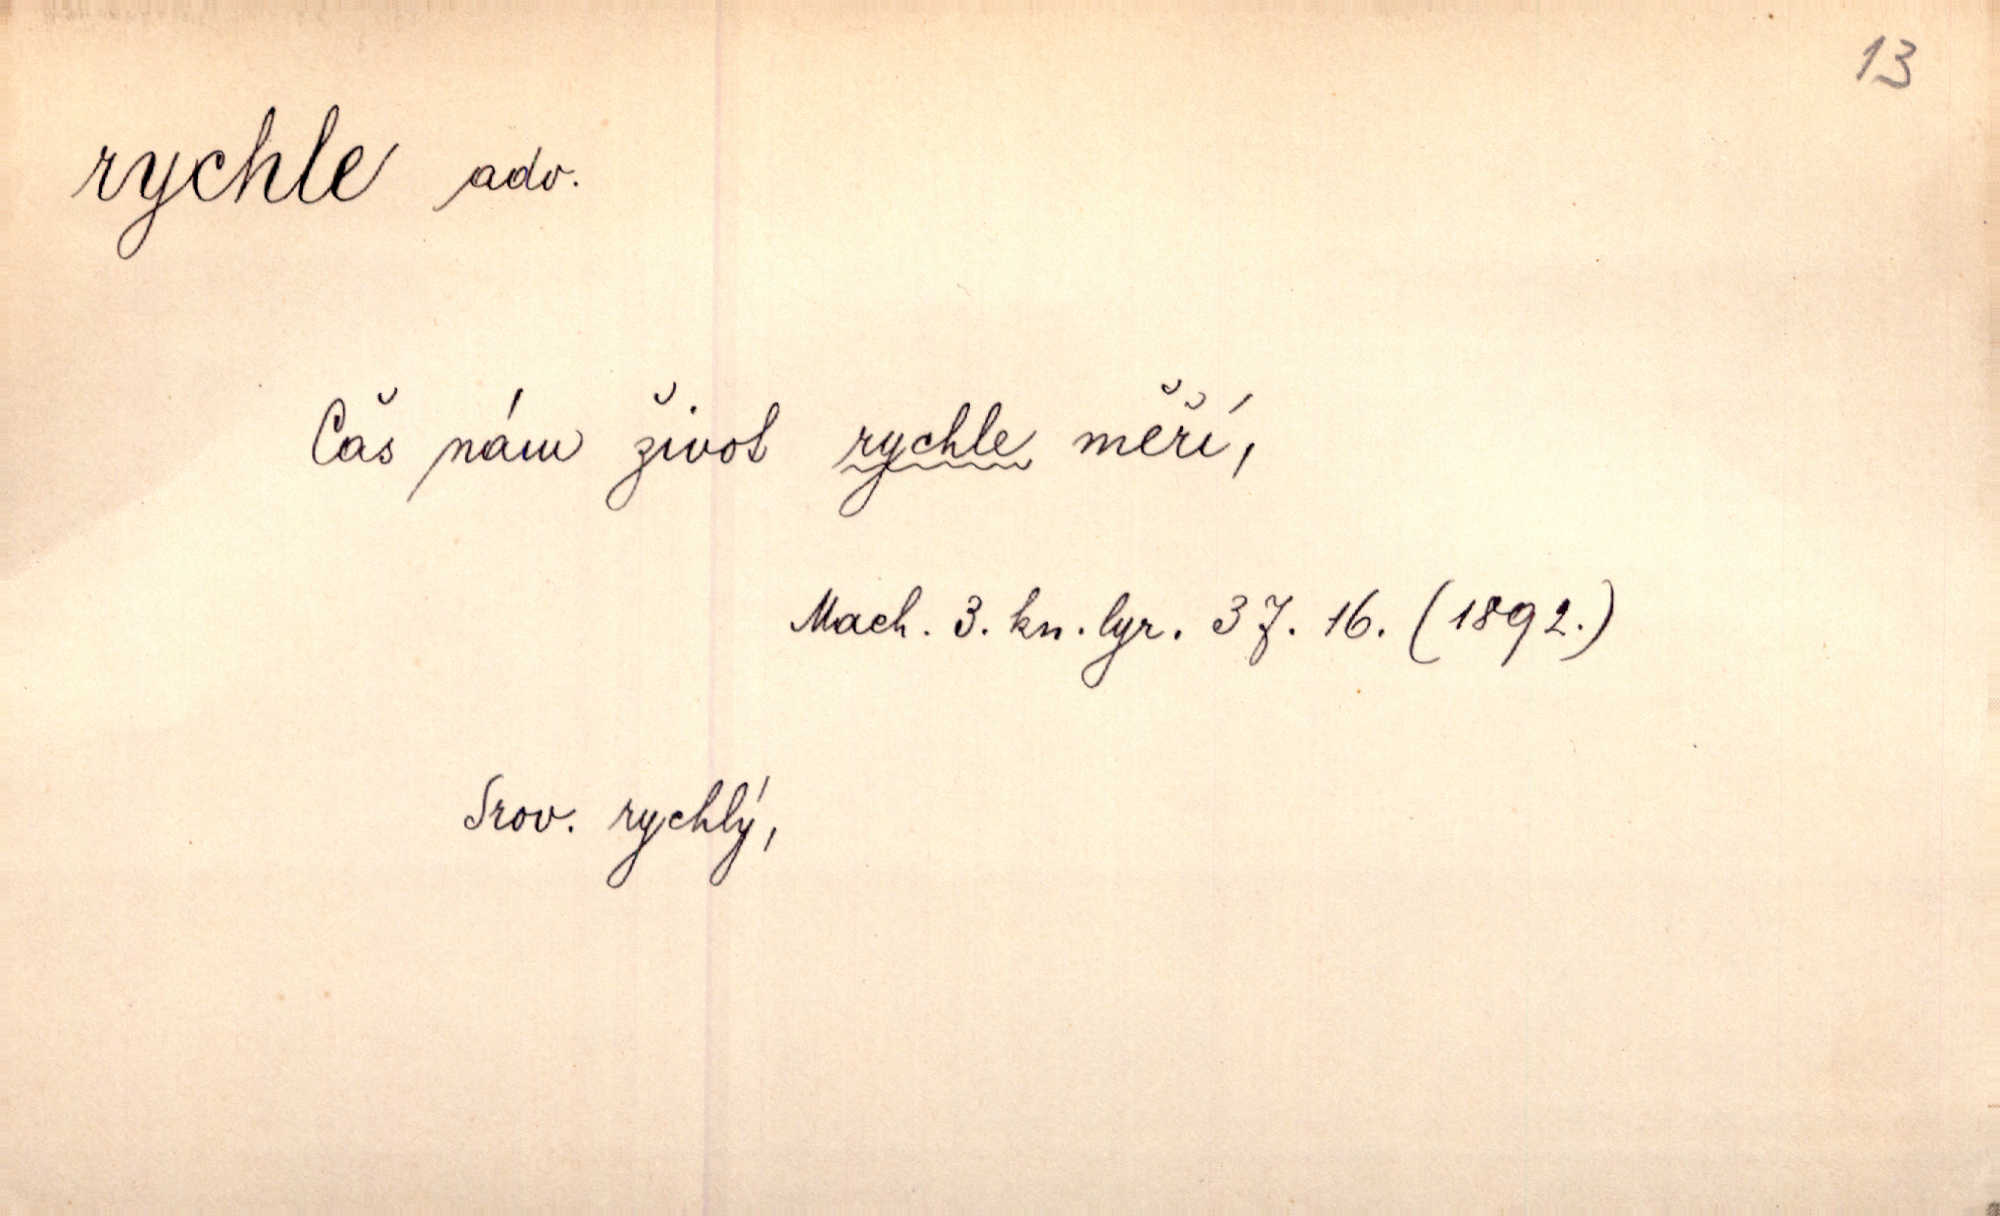 13
rychle adv.
Čas nám život rychle měří,
Mach. 3. kn. lyr. 37. 16. (1892.)
Srov. rychlý,